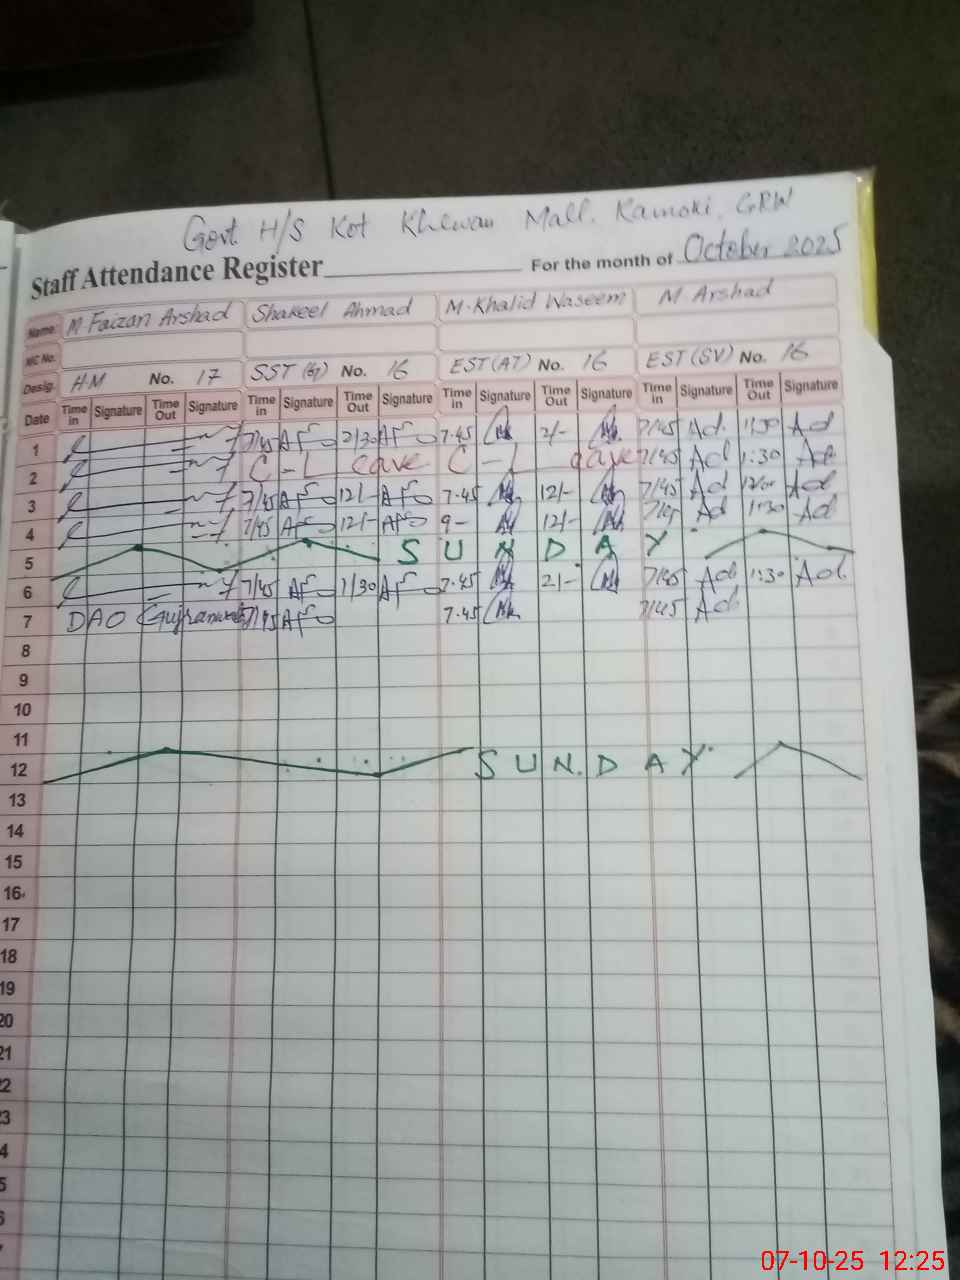 Govt H/S Kot Khewan Mall. Kamoki. GRW
Staff Attendance Register For the month of October 2025
Name M Faizan Arshad Shakeel Ahmad M. Khalid Waseem M Arshad
NIC No.
Desig. HM No. 17 SST (G) No. 16 EST (AT) No. 16 EST (SV) No. 16
Date Time in Signature Time Out Signature Time in Signature Time Out Signature Time in Signature Time Out Signature Time in Signature Time Out Signature
1 7/45 2/30 7.45 2/- 7/45 Ad 1:30 Ad
2 C - Leave C - Leave 7/45 Ad 1:30 Ad
3 7/45 12/- 7.45 12/- 7/45 Ad 12/00 Ad
4 7/45 12/- 9- 12/- 7/45 Ad 11:30 Ad
5 SUNDAY
6 7/45 1/30 7.45 2/- 7/45 Ad 1:30 Ad
7 DAO Gujranwala 7/45 7.45 7/45 Ad
8
9
10
11
12 SUN.DAY
13
14
15
16
17
18
19
20
21
22
23
4
5
6
07-10-25 12:25